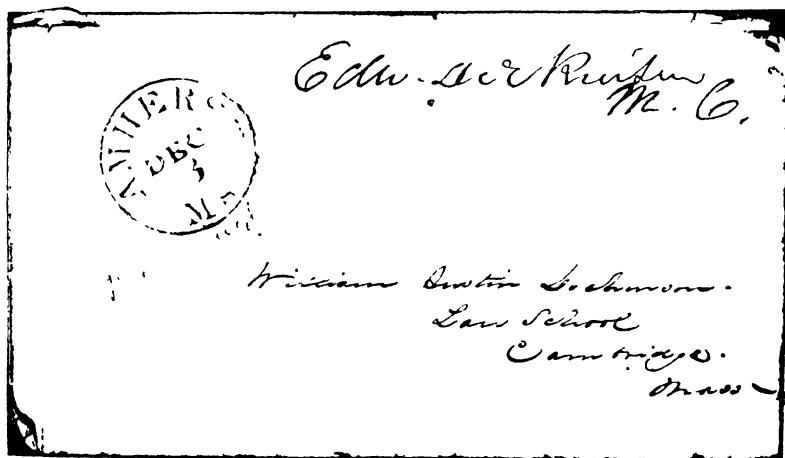 Edw. Dickinson
M. C.
AMHERS
DEC
3
MS
William Austin Dickinson.
Law School
Cambridge.
Mass